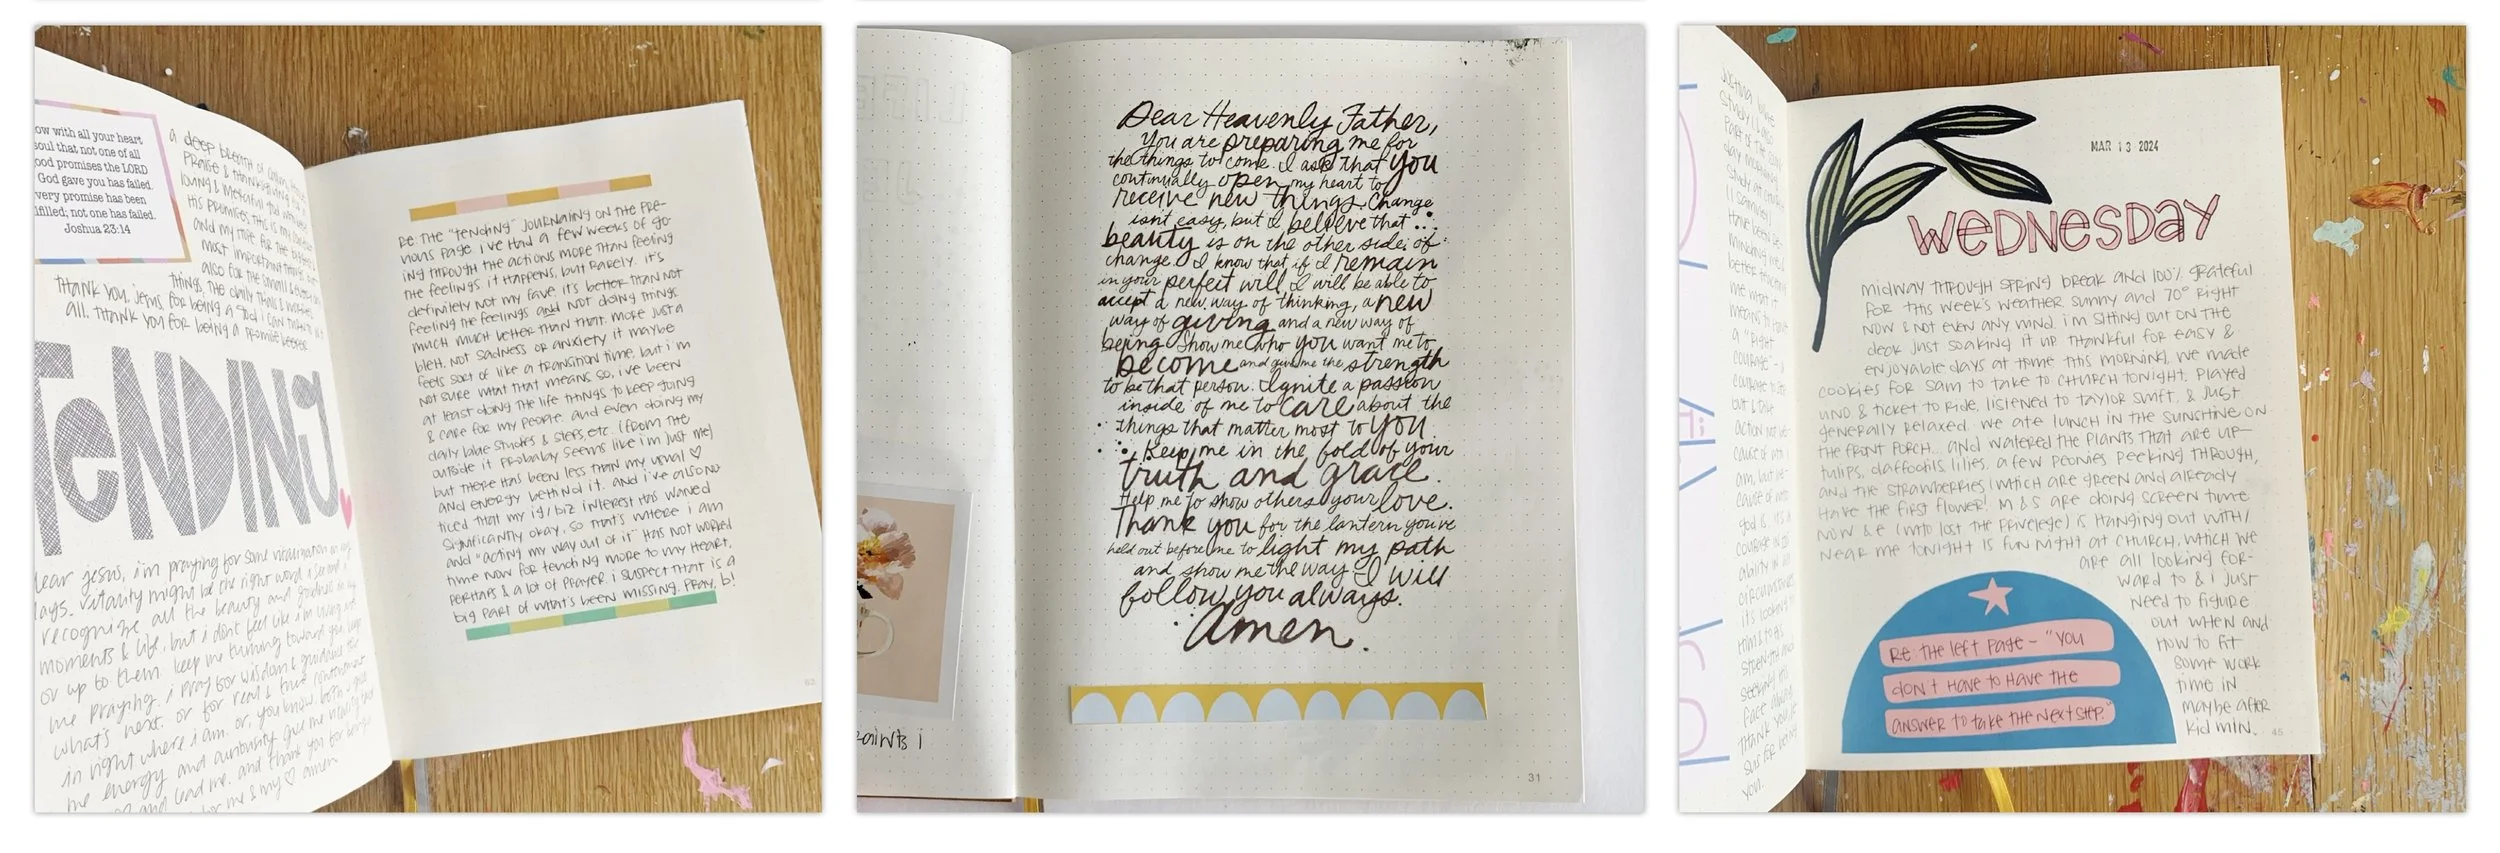 ow with all your heart
soul that not one of all
ood promises the LORD
God gave you has failed.
very promise has been
lfilled; not one has failed.
Joshua 23:14
a deep breath of
Praise & thanksgiving
loving & merciful
His promises. this is my
and my
most important things
also for the small &
things, the daily
Thank you, Jesus, for being a God I can
all. Thank you for being a promise keeper
TeNDiNg
Dear Jesus, i'm praying for some
days. vitality might be the right word
recognize all the beauty and goodness in my
moments & life, but i don't feel like i'm living
or up to them. keep me turning toward you. keep
me praying. i pray for wisdom & guidance
what's next. or for real & true contentment
in right where i am. or, you know, both. give
me energy and
and lead me. and thank you for being
for me & my ♡ amen
RE: THE "TENDING" JOURNALING ON THE PRE-
VIOUS PAGE. I'VE HAD A FEW WEEKS OF GO-
ING THROUGH THE ACTIONS MORE THAN FEELING
THE FEELINGS. IT HAPPENS, BUT RARELY. IT'S
definitely not my fave. it's better than not
feeling the feelings and not doing things
much much better than that. more just a
bleh. not sadness or anxiety. it maybe
feels sort of like a transition time, but i'm
not sure what that means. so, i've been
at least doing the life things to keep going
& care for my people. and even doing my
daily bible studies & steps, etc. (from the
outside it probably seems like i'm just me)
but there has been less than my usual ♡
and energy behind it. and i've also no
ticed that my ig/biz interest has waned
significantly. okay, so that's where i am
and "acting my way out of it" has not worked
time now for tending more to my heart,
perhaps & a lot of prayer. i suspect that is a
big part of what's been missing. pray, b!
63
Dear Heavenly Father,
You are preparing me for
the things to come. I ask that you
continually open my heart to
receive new things. Change
isn't easy, but I believe that...
beauty is on the other side of
change. I know that if I remain
in your perfect will I will be able to
accept a new way of thinking, a new
way of giving and a new way of
being. Show me who you want me to
become and give me the strength
to be that person. Ignite a passion
inside of me to care about the
things that matter most to you
Keep me in the fold of your
truth and grace.
Help me to show others your love.
Thank you for the lantern you've
held out before me to light my path
and show me the way. I will
follow you always.
Amen.
31
paints i
MAR 13 2024
WeDNesDaY
MIDWAY THROUGH SPRING BREAK AND 100% GRATEFUL
FOR THIS WEEK'S WEATHER. SUNNY AND 70° RIGHT
NOW & NOT EVEN ANY WIND. I'M SITTING OUT ON THE
DECK JUST SOAKING IT UP. THANKFUL FOR EASY &
ENJOYABLE DAYS AT HOME. THIS MORNING, WE MADE
COOKIES FOR SAM TO TAKE TO CHURCH TONIGHT. PLAYED
UNO & TICKET TO RIDE, LISTENED TO TAYLOR SWIFT, & JUST
GENERALLY RELAXED. WE ATE LUNCH IN THE SUNSHINE ON
THE FRONT PORCH... AND WATERED THE PLANTS THAT ARE UP—
TULIPS, DAFFODILS, LILIES, A FEW PEONIES PEEKING THROUGH,
AND THE STRAWBERRIES (WHICH ARE GREEN AND ALREADY
HAVE THE FIRST FLOWER! M & S ARE DOING SCREEN TIME
NOW & E (WHO LOST THE PRIVELEGE) IS HANGING OUT WITH/
NEAR ME. TONIGHT IS FUN NIGHT AT CHURCH, WHICH WE
ARE ALL LOOKING FOR-
WARD TO & I JUST
NEED TO FIGURE
OUT WHEN AND
HOW TO FIT
SOME WORK
TIME IN
MAYBE AFTER
KID MIN.
RE THE LEFT PAGE – "YOU
DON'T HAVE TO HAVE THE
ANSWER TO TAKE THE NEXT STEP."
45